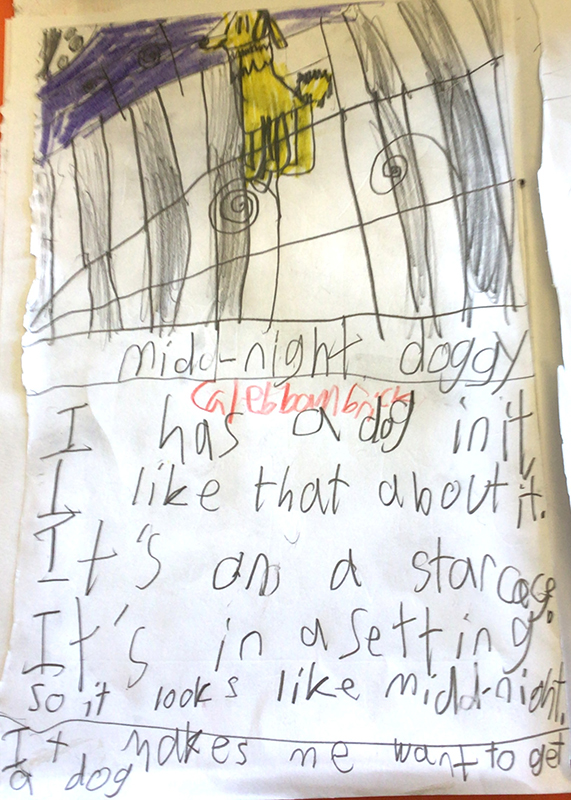 midd-night doggy
Calebbambrick
I has a dog in it,
I like that about it.
It's on a starcase.
It's in a setting
so it looks like midd-night.
It makes me want to get
a dog